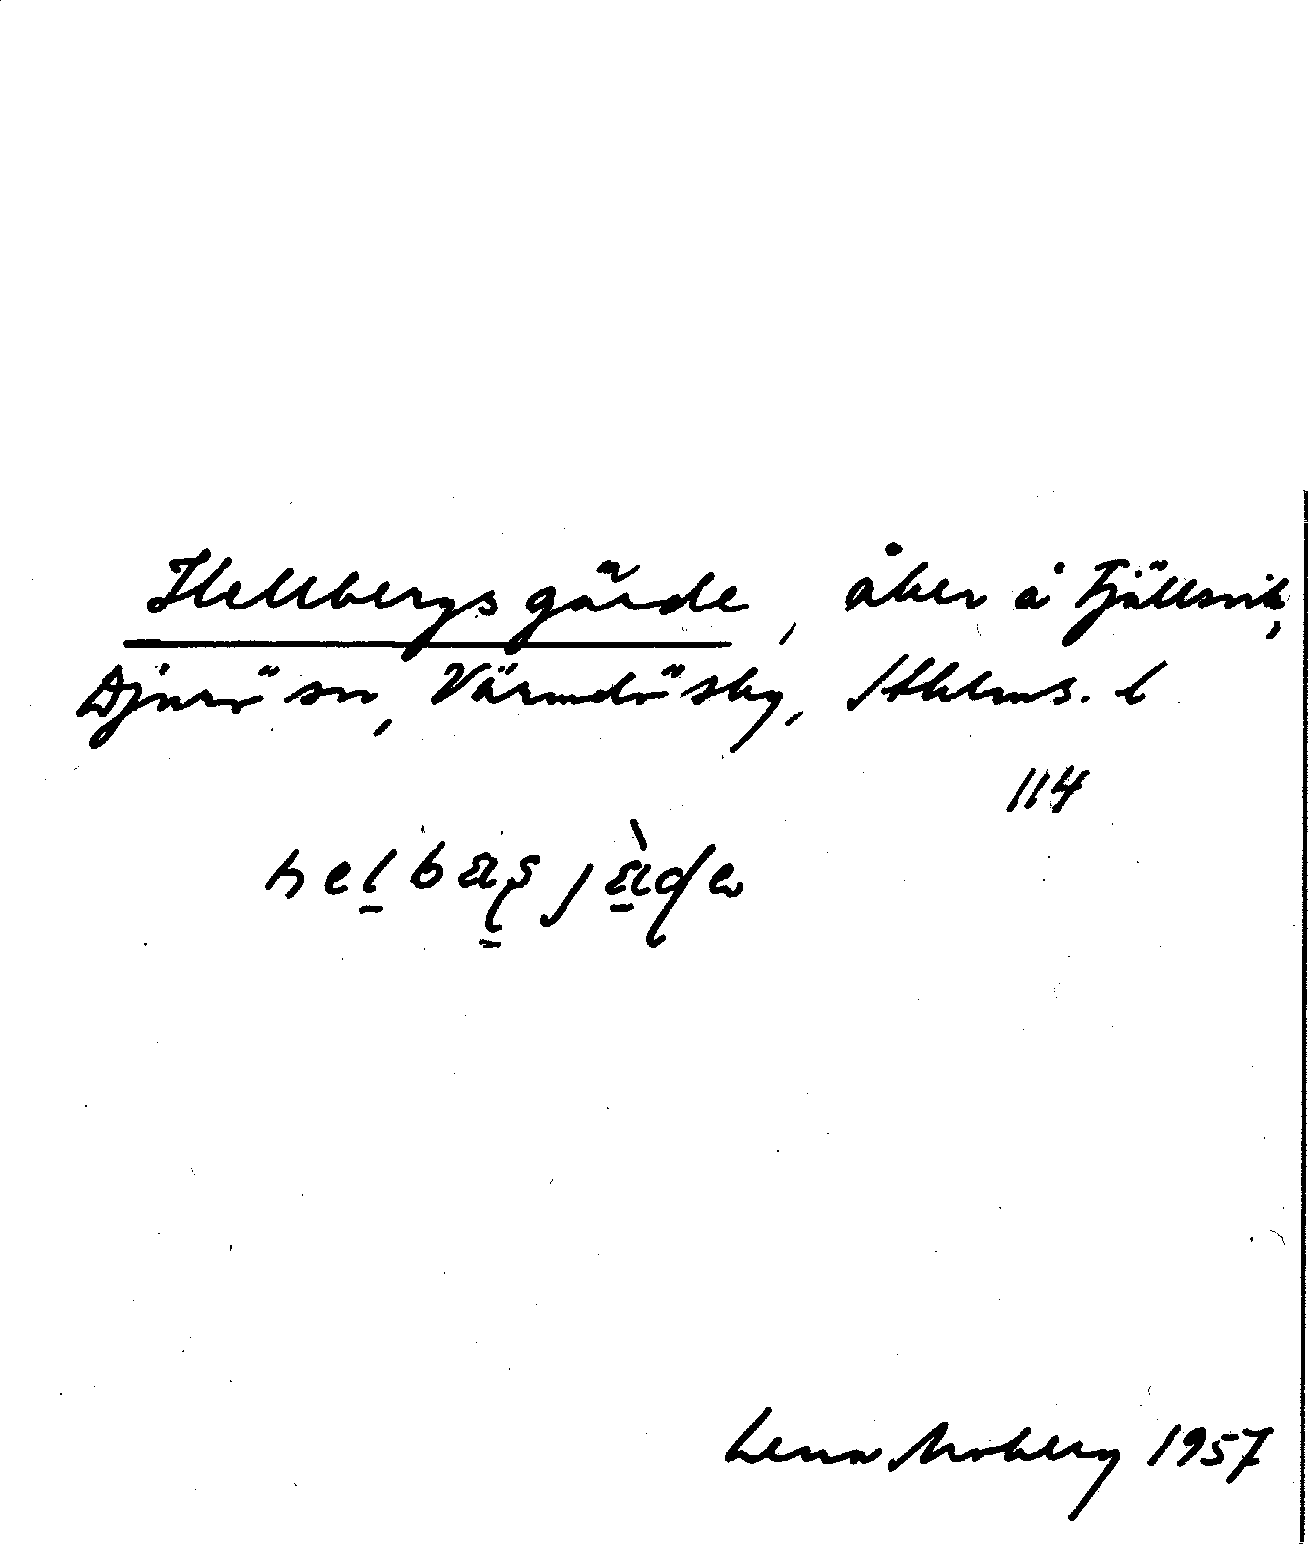 Hellbergs gärde, åker å Fjällsvik,
Djurö sn, Värmdö sky, Sthlms. l
114
Lena Moberg 1957